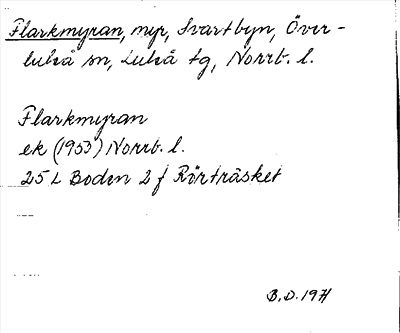 Flarkmyran, myr, Svartbyn, Över-
luleå sn, Luleå tg, Norrb. l.
Flarkmyran
ek (1953) Norrb. l.
25 L Boden 2 f Rörträsket
B.D. 1971